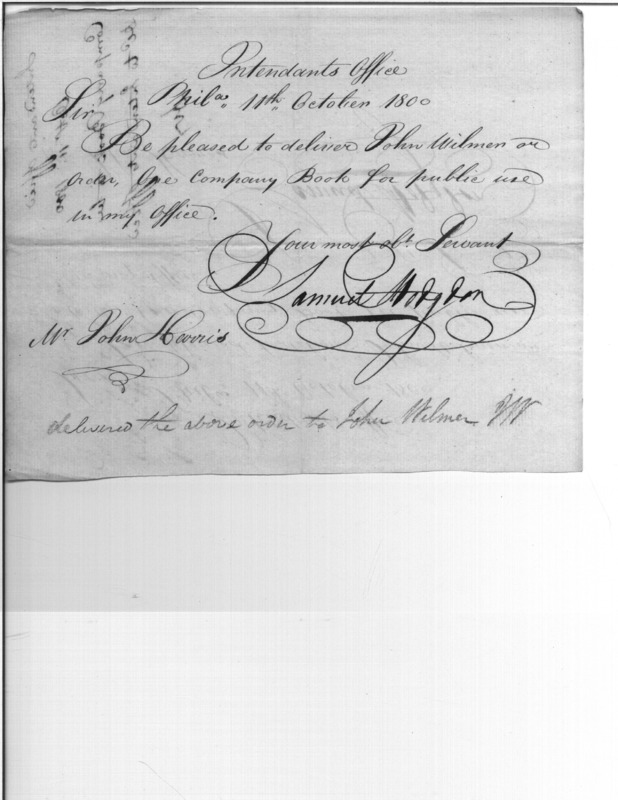 Intendants Office
Phila. 11th October 1800
Sir,
Be pleased to deliver John Wilmer or
order, One Company Book for public use
in my Office.
Your most obt. Servant
Samuel Hodgdon
Mr John Harris
delivered the above order to John Wilmer JW